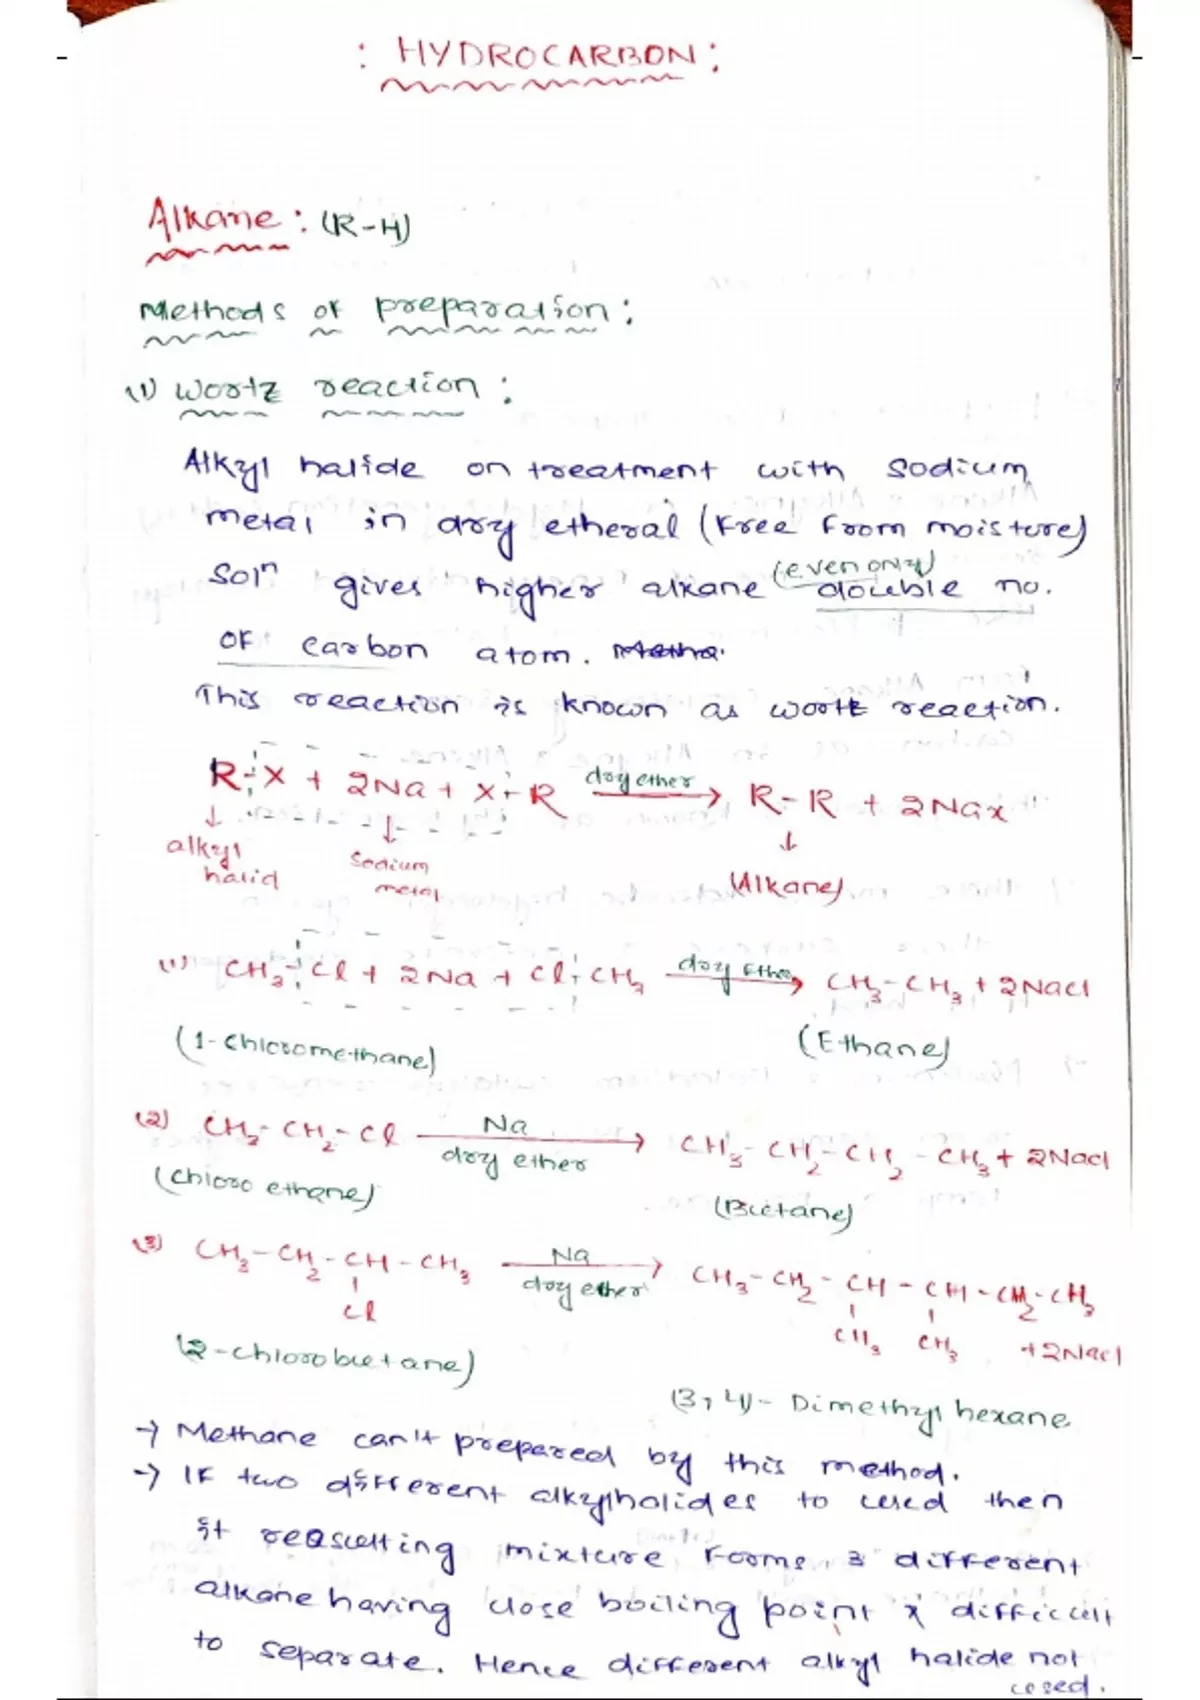 : HYDROCARBON :
Alkane : (R-H)
Methods of preparation :
(1) Wortz reaction :
Alkyl halide on treatment with sodium
metal in dry etheral (Free from moisture)
(even only)
Solⁿ gives higher alkane double no.
of carbon atom. Metha.
This reaction is known as wortz reaction.
R-X + 2Na + X-R dry ether → R-R + 2Nax
↓ ↓ ↓
alkyl halid Sodium metal (Alkane)
(1) CH₃-Cl + 2Na + Cl-CH₃ dry Ether → CH₃-CH₃ + 2NaCl
(1-chloromethane) (Ethane)
(2) CH₃-CH₂-Cl Na dry ether → CH₃-CH₂-CH₂-CH₃ + 2NaCl
(chloro ethane) (Butane)
(3) CH₃-CH₂-CH-CH₃ Na dry ether → CH₃-CH₂-CH-CH-CH₂-CH₃
Cl CH₃ CH₃ +2NaCl
(2-chlorobutane)
(3,4)-Dimethyl hexane
→ Methane can't prepared by this method.
→ If two different alkylhalides to used then
it reasulting mixture Forms 3 different
alkane having close boiling point & difficult
to separate. Hence different alkyl halide not
used.